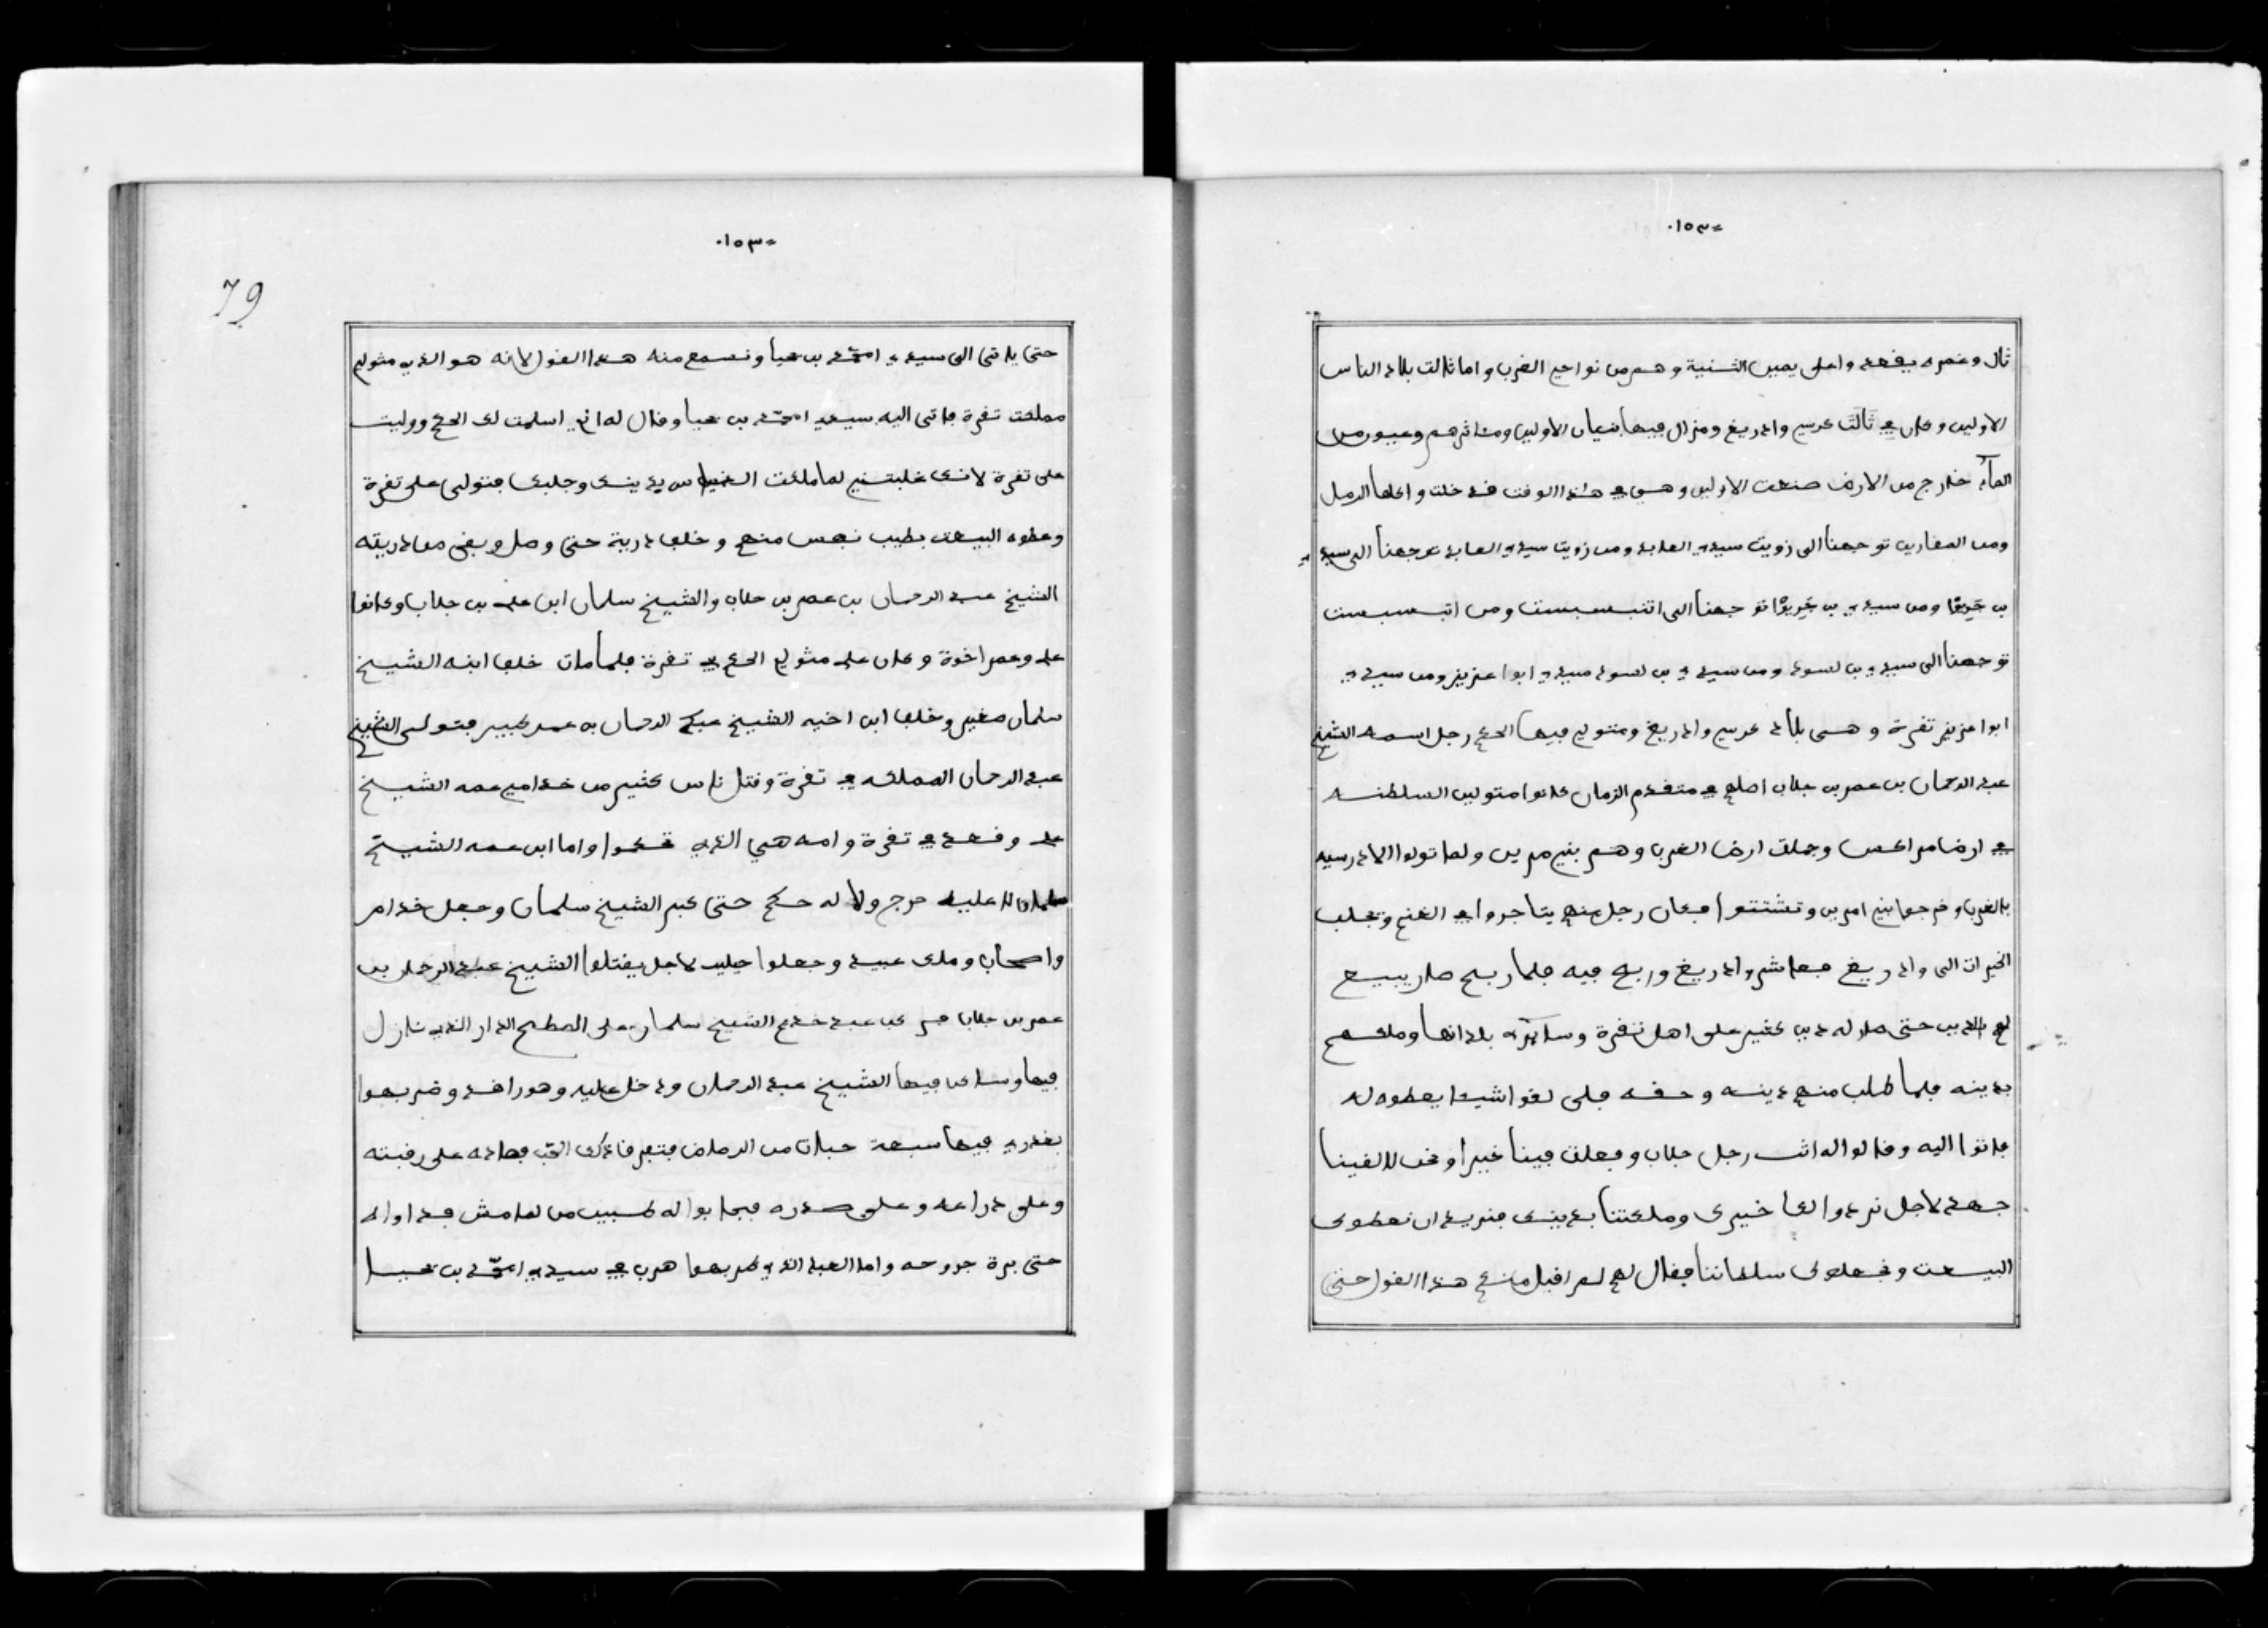 ۰۱٥۳=
ثال وغمره يفعد واعلى يمين الثنية وهم من نواحي الغرب واما ثالت بلاد الناس
الاولين وكان في ثالت عرسي وادريغ ومنزال فيها بنيان الاولين ومناثرهم وعيون من
الماء خارج من الارض صنعت الاولين وهي في هذا الوقت قد خلت واكلها الرمل
ومن المغارين توجهنا الى زويت سيدي العابد ومن زويت سيدي العابد توجهنا الى سيدي
بن ومن سيدي بن توجهنا الى اتبسبست ومن اتبسبست
توجهنا الى سيدي بن لسود ومن سيدي بن لسود سيدي ابوا عزيز ومن سيدي
ابوا عزيز تفرة وهي بلاد عرسي وادريغ ومتولي فيها الحكم رجل اسمه الشيخ
عبد الرحمان بن عمر بن جلاب اصلهم في متقدم الزمان كانوا متولين السلطنه
في ارض مراكس وجملت ارض الغرب وهم بني مرين ولما تولوا الادرسيه
بالغرب وخرجوا بني امرين وتشتتوا فكان رجل منهم يتاجروا في الغنم ويجلب
الخيرات الى وادريغ فعاشر وادريغ وربح فيه فلما ربح صار يبيع
لهم بالدين حتى صار له دين كثير على اهل تفرة وساير بلدانها وملكهم
بدينه فلما طلب منهم دينه وحقه فلى لقوا شيء يعطوه له
فاتوا اليه وقالوا له انت رجل جلاب وفعلت فينا خيرا ونحن لا لقينا
جهد لاجل نردوا لك خيرك وملكتنا بدينك فنريد ان نعطوك
البيعت ونجعلوك سلطاننا فقال لهم لم اقبل منكم هذا القول حتى
۰۱٥۳=
79
حتى ياتي الى سيدي امحمد بن يحيا ونسمع منه هذا القول لانه هو الذي متولي
مملكت تفرة فاتى اليه سيدي امحمد بن يحيا وقال له اني اسلمت لك الحكم ووليت
على تفرة لانك غلبتني لما ملكت الناس بدينك وجلبك فتولى على تفرة
وعطوه البيعت بطيب نفس منهم وخلف درية حتى وصل وبقى من دريته
الشيخ عبد الرحمان بن عمر بن جلاب والشيخ سلمان ابن علي بن جلاب وكانوا
علي وعمر اخوة وكان علي متولي الحكم في تفرة فلما مات خلف ابنه الشيخ
سلمان صغير وخلف ابن اخيه الشيخ عبد الرحمان به عمر كبير فتولى الشيخ
عبد الرحمان المملكه في تفرة وقتل ناس كثير من خدامين عمه الشيخ
علي وقعد في تفرة وامه هي الذي تحكموا واما ابن عمه الشيخ
سلمان لا عليه حرج ولا له حكم حتى كبر الشيخ سلمان وجعل خدام
واصحاب وملك عبيد وجعلوا حيلت لاجل يقتلوا الشيخ عبد الرحمان بن
عمر بن جلاب عبد خدم الشيخ سلمان على السطح الدار الذي نازل
فيها وساكن فيها الشيخ عبد الرحمان ودخل عليه وهو راقد وضربهوا
بغدري فيها سبعة حبات من الرصاص فتفرقا ذلك الحب فصاده على رقبته
وعلى دراعه وعلى صدره فجابوا له طبيب من لغامش فداواه
حتى برة جروحه واما العبد الذي ضربهوا هرب في سيدي امحمد بن يحيا